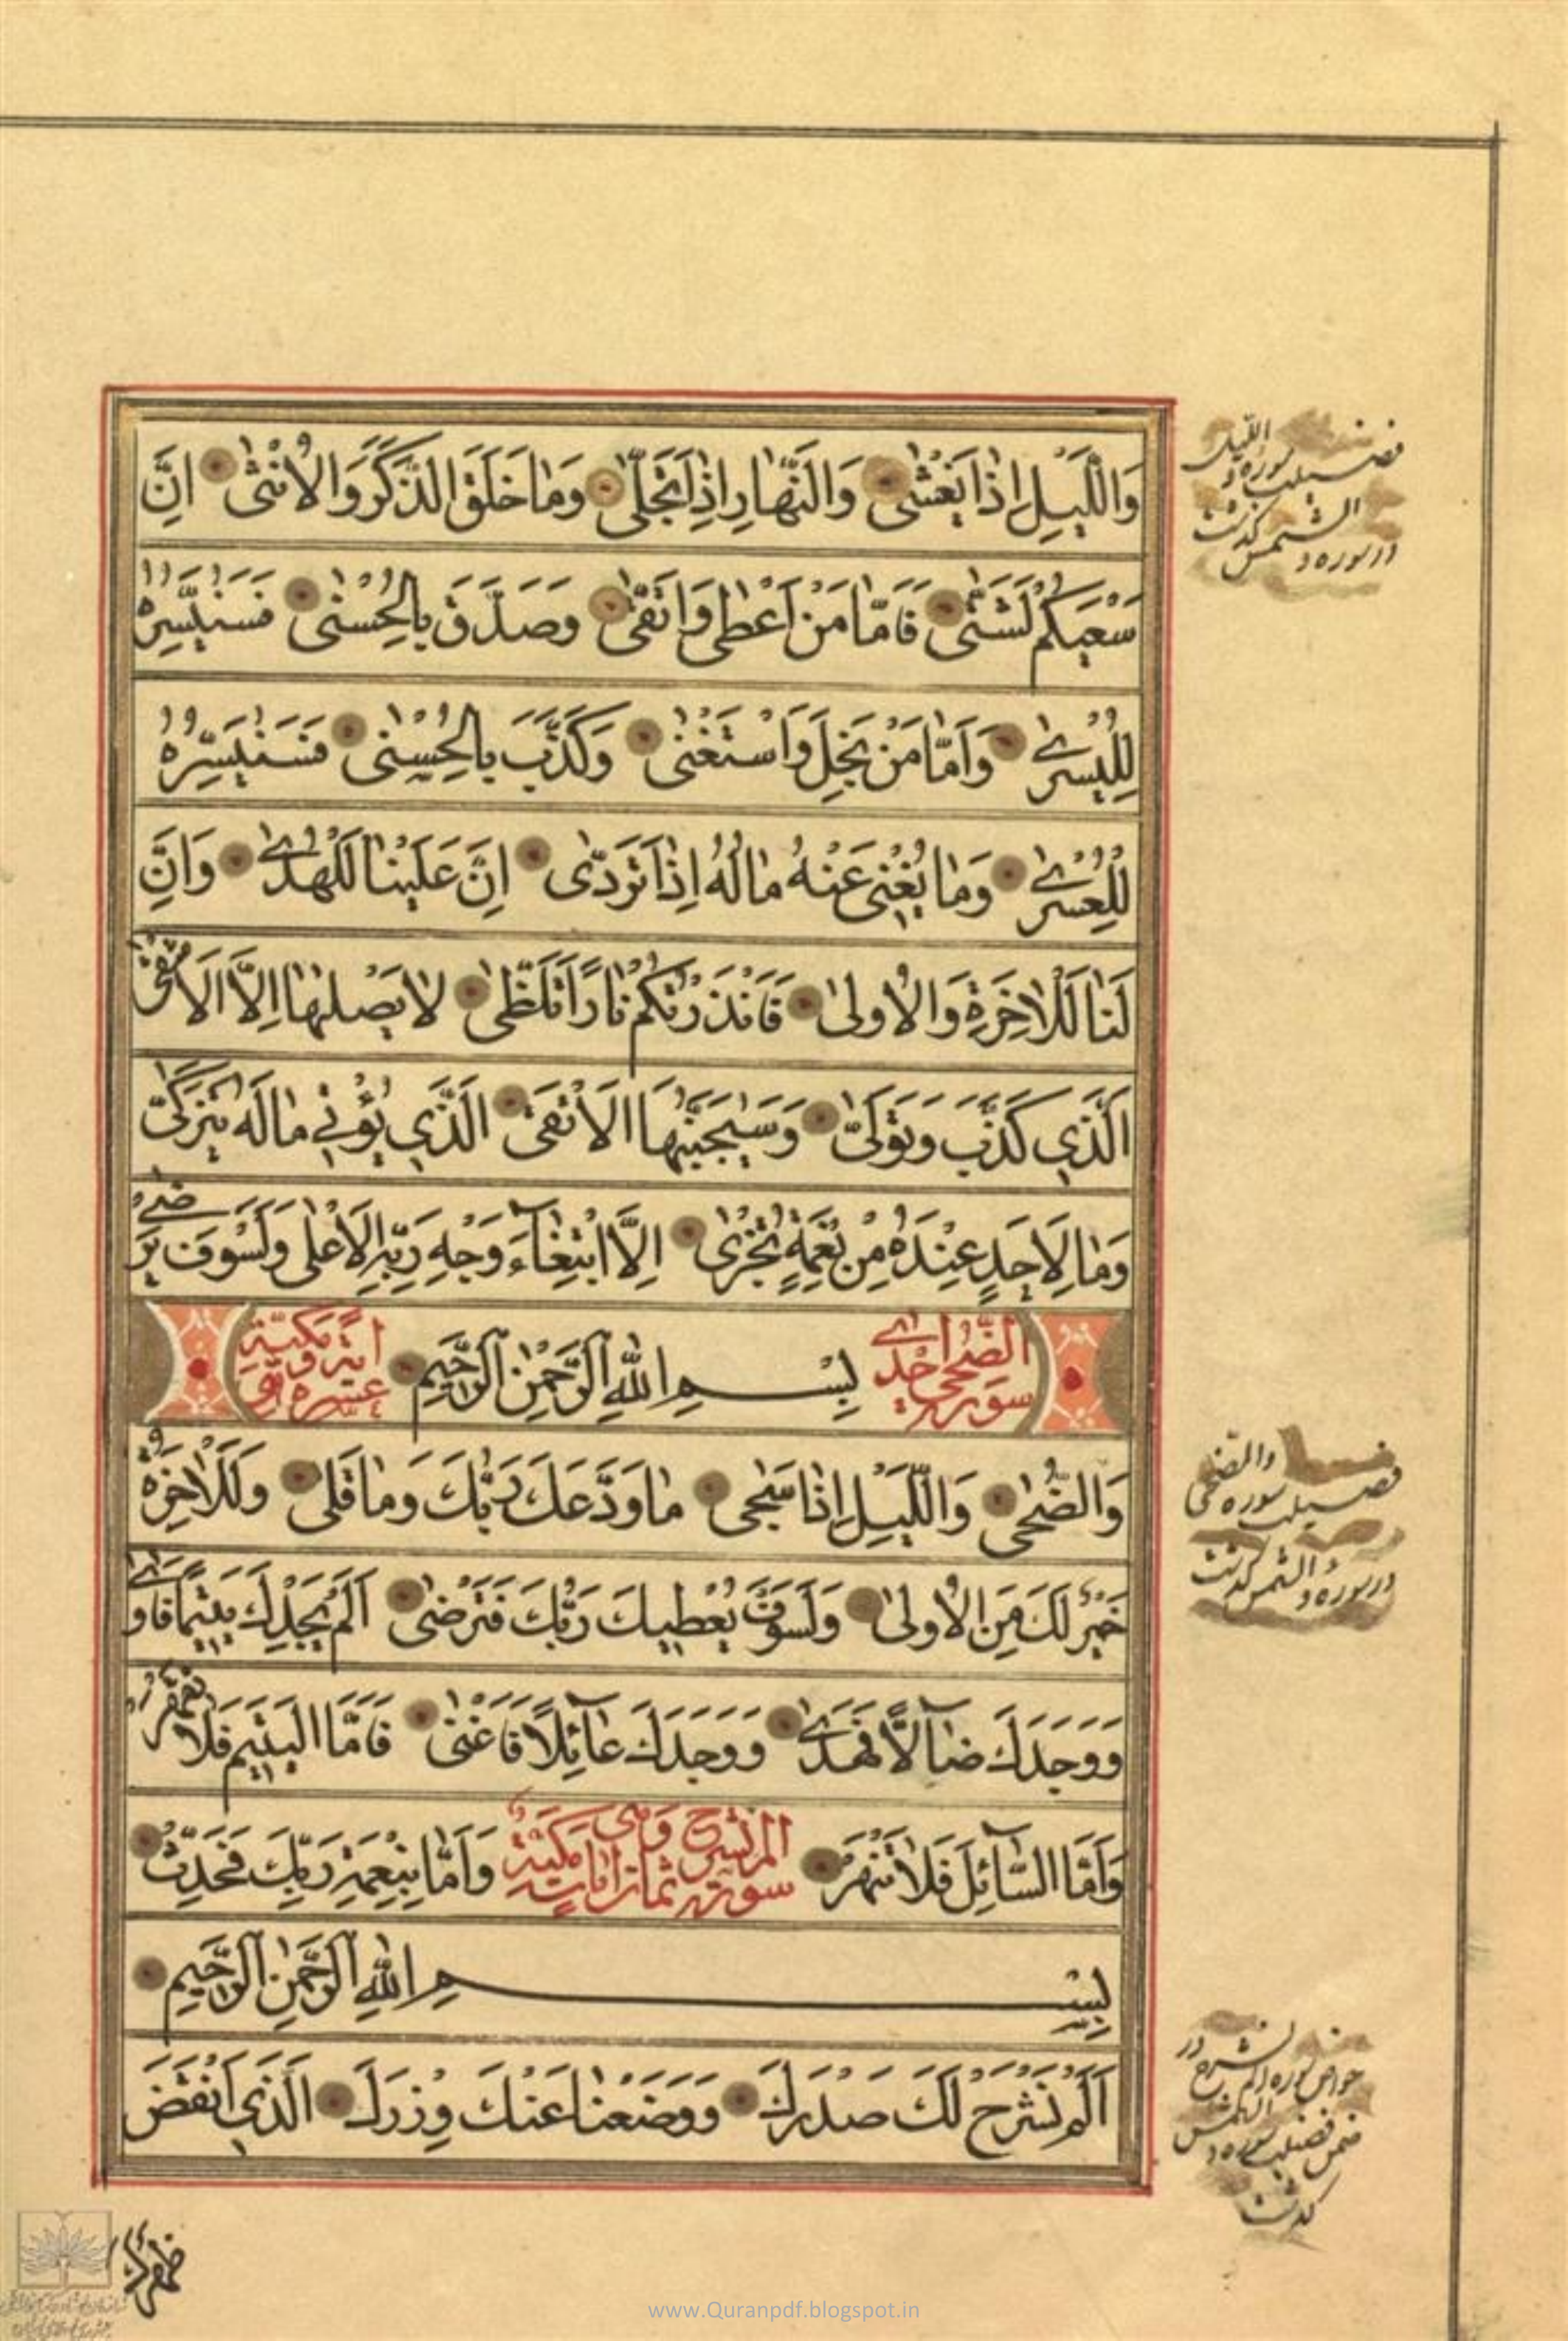 وَاللَّيْلِ اِذٰا يَغْشٰى وَالنَّهٰارِ اِذٰا تَجَلّٰى وَمٰا خَلَقَ الذَّكَرَ وَالْاُنْثٰى اِنَّ
سَعْيَكُمْ لَشَتّٰى فَاَمّٰا مَنْ اَعْطٰى وَاتَّقٰى وَصَدَّقَ بِالْحُسْنٰى فَسَنُيَسِّرُهُ
لِلْيُسْرٰى وَاَمّٰا مَنْ بَخِلَ وَاسْتَغْنٰى وَكَذَّبَ بِالْحُسْنٰى فَسَنُيَسِّرُهُ
لِلْعُسْرٰى وَمٰا يُغْنِى عَنْهُ مٰالُهُ اِذٰا تَرَدّٰى اِنَّ عَلَيْنٰا لَلْهُدٰى وَاِنَّ
لَنٰا لَلْاٰخِرَةَ وَالْاُولٰى فَاَنْذَرْتُكُمْ نٰارًا تَلَظّٰى لٰا يَصْلٰىهٰا اِلَّا الْاَشْقٰى
اَلَّذِي كَذَّبَ وَتَوَلّٰى وَسَيُجَنَّبُهَا الْاَتْقَى الَّذِي يُؤْتِي مٰالَهُ يَتَزَكّٰى
وَمٰا لِاَحَدٍ عِنْدَهُ مِنْ نِعْمَةٍ تُجْزٰى اِلَّا ابْتِغٰاءَ وَجْهِ رَبِّهِ الْاَعْلٰى وَلَسَوْفَ يَرْضٰى
سورة الضحى احدى
بِسْمِ اللّٰهِ الرَّحْمٰنِ الرَّحِيمِ
عشرة اية مكية
وَالضُّحٰى وَاللَّيْلِ اِذٰا سَجٰى مٰا وَدَّعَكَ رَبُّكَ وَمٰا قَلٰى وَلَلْاٰخِرَةُ
خَيْرٌ لَكَ مِنَ الْاُولٰى وَلَسَوْفَ يُعْطِيكَ رَبُّكَ فَتَرْضٰى اَلَمْ يَجِدْكَ يَتِيمًا فَاٰوٰى
وَوَجَدَكَ ضٰالًّا فَهَدٰى وَوَجَدَكَ عٰائِلًا فَاَغْنٰى فَاَمَّا الْيَتِيمَ فَلٰا تَقْهَرْ
وَاَمَّا السّٰائِلَ فَلٰا تَنْهَرْ
سورة الم نشرح وهى ثمان ايات مكية
وَاَمّٰا بِنِعْمَةِ رَبِّكَ فَحَدِّثْ
بِسْمِ اللّٰهِ الرَّحْمٰنِ الرَّحِيمِ
اَلَمْ نَشْرَحْ لَكَ صَدْرَكَ وَوَضَعْنٰا عَنْكَ وِزْرَكَ الَّذِى اَنْقَضَ
ظهرك
فضيلت سوره و الليل
در سوره و الشمس گذشت
فضيلت سوره والضحى
در سوره و الشمس گذشت
خواص سوره الم نشرح در
ضمن فضيلت سوره و الشمس
گذشت
www.Quranpdf.blogspot.in